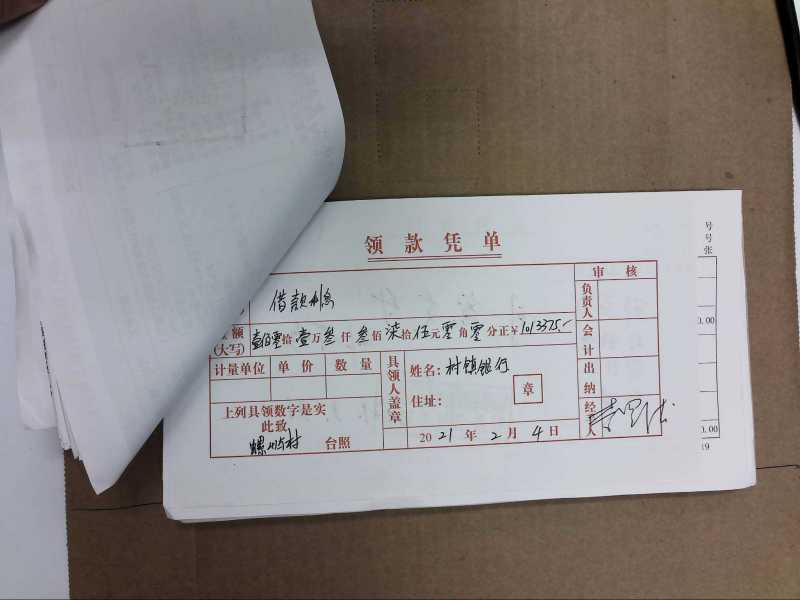 领款凭单
审核
借款利息
负责人
额
(大写)
壹佰零拾壹万叁仟叁佰柒拾伍元零角零分正¥1013375-
会计
计量单位 单价 数量
具领人盖章
姓名: 村镇银行
住址:
章
出纳
上列具领数字是实
此致
村 台照
2021年2月4日
经人
号
号
张
0.00
0.00
19